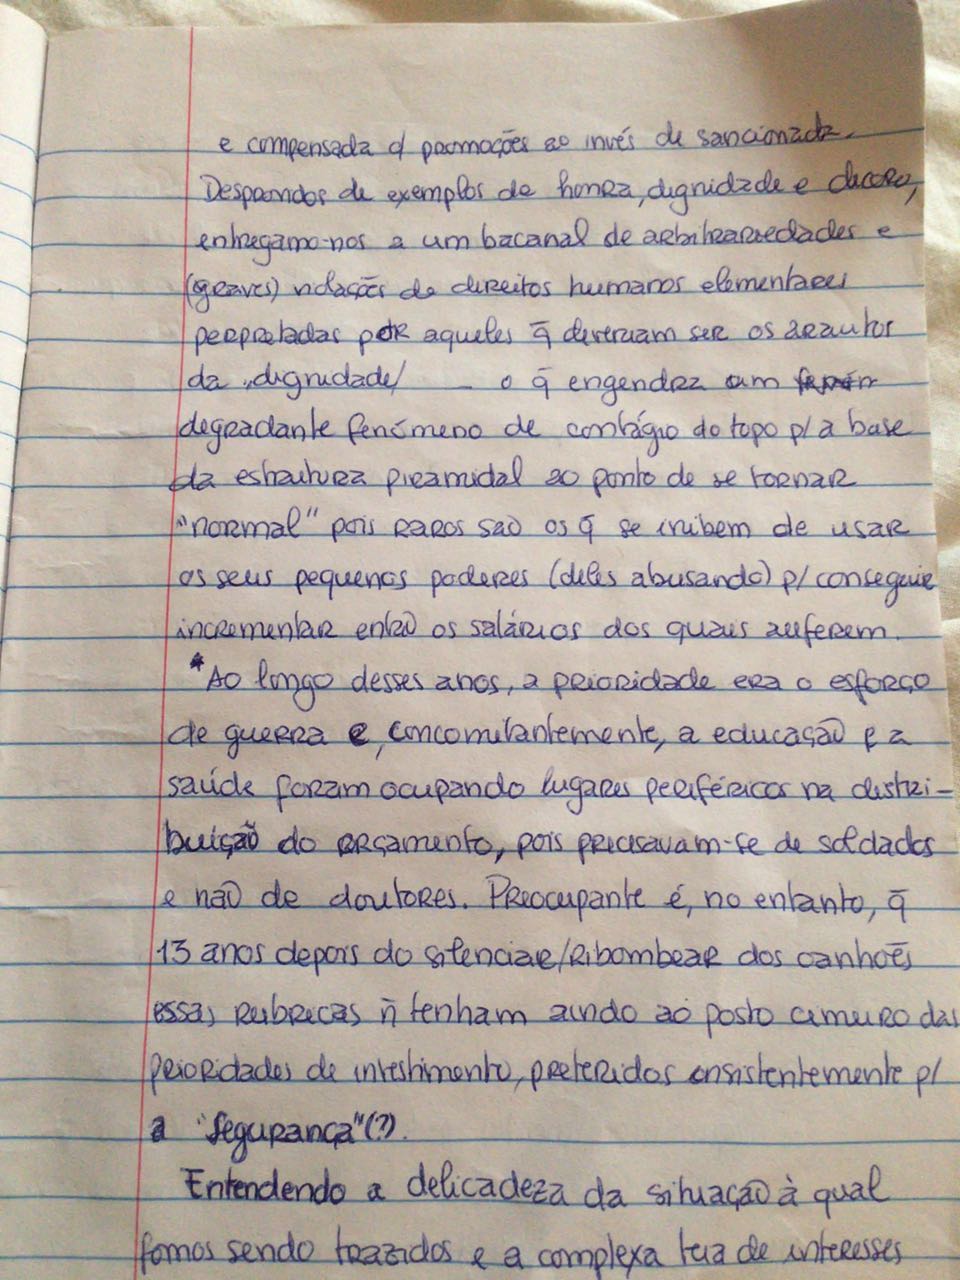 e compensada d/ promoções ao invés de sancionada.
Desprovidos de exemplos de honra, dignidade e decoro,
entregamo-nos a um bacanal de arbitrariedades e
(graves) violações de direitos humanos elementares
perpretadas por aqueles q̄ deveriam ser os arautos
da „dignidade/ _ o q̄ engendra um
degradante fenómeno de contágio do topo p/ a base
da estrutura piramidal ao ponto de se tornar
"normal" pois raros são os q̄ se inibem de usar
os seus pequenos poderes (deles abusando) p/ conseguir
incrementar então os salários dos quais auferem.
*Ao longo desses anos, a prioridade era o esforço
de guerra e, concomitantemente, a educação e a
saúde foram ocupando lugares periféricos na distri-
buição do orçamento, pois precisavam-se de soldados
e não de doutores. Preocupante é, no entanto, q̄
13 anos depois do silenciar/ribombear dos canhões
essas rubricas ñ tenham aindo ao posto cimeiro das
prioridades de investimento, preteridos consistentemente p/
a "Segurança"(?).
Entendendo a delicadeza da situação à qual
fomos sendo trazidos e a complexa teia de interesses